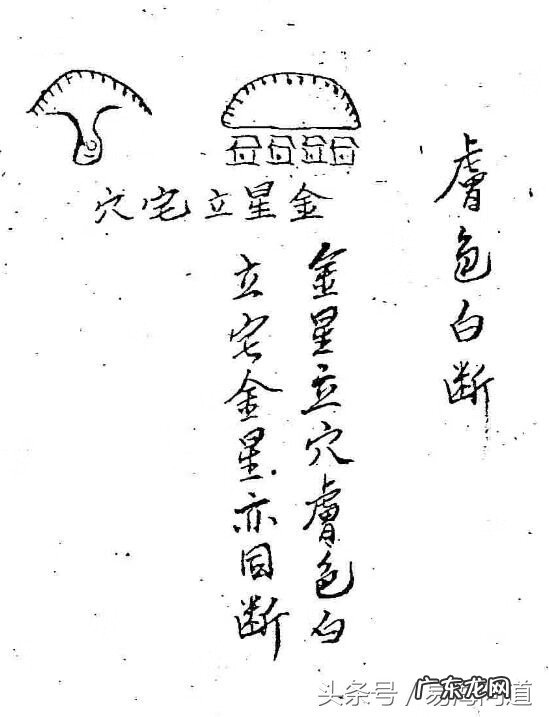 膚色白断
金星立宅穴
金星立穴膚色白
立宅金星亦同断
头条号／易海问道
广东龙网